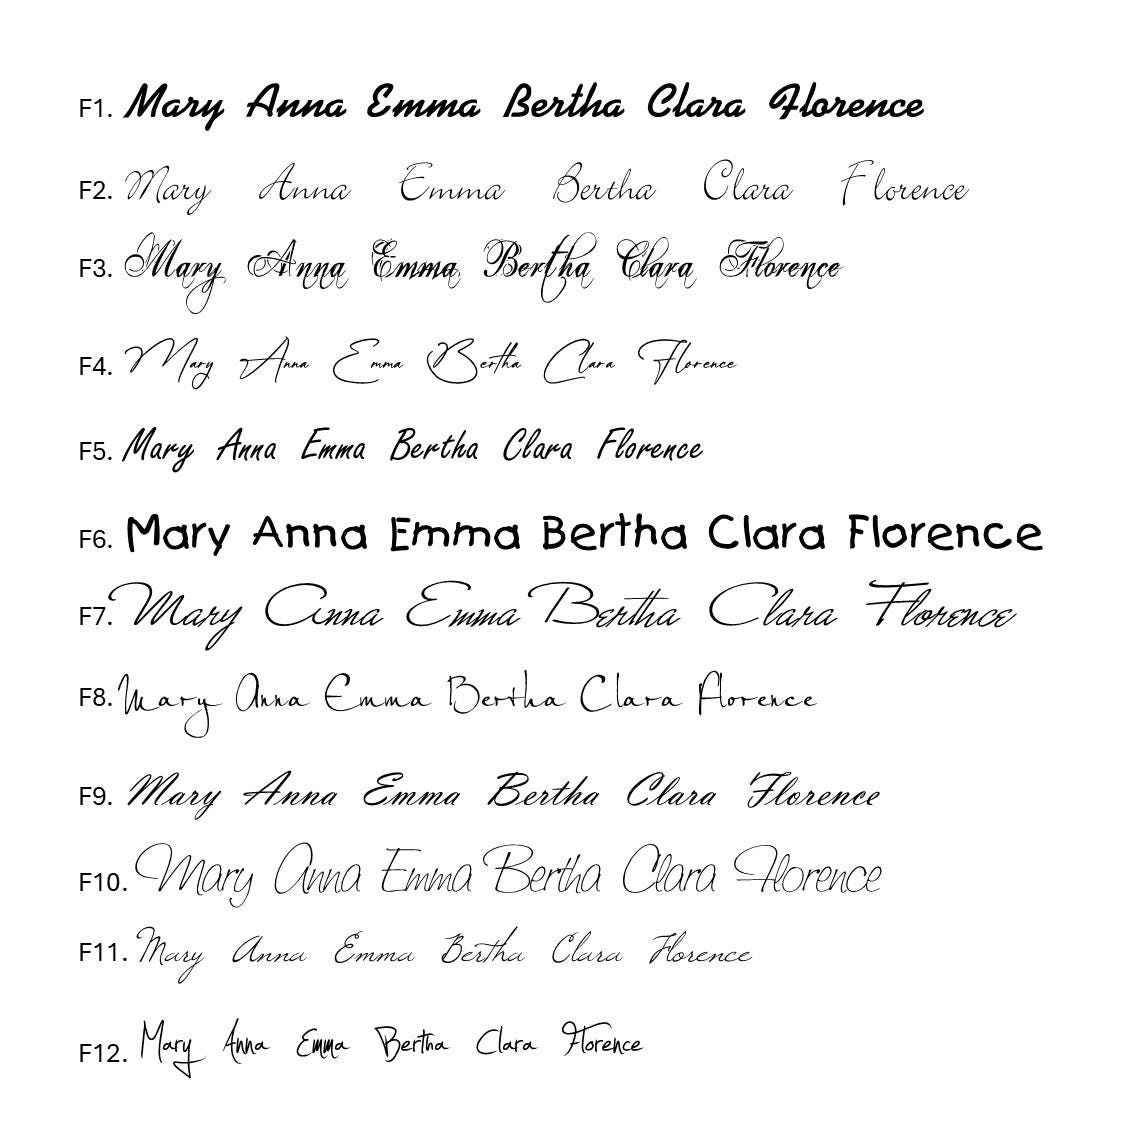 F1. Mary Anna Emma Bertha Clara Florence
F2. Mary Anna Emma Bertha Clara Florence
F3. Mary Anna Emma Bertha Clara Florence
F4. Mary Anna Emma Bertha Clara Florence
F5. Mary Anna Emma Bertha Clara Florence
F6. Mary Anna Emma Bertha Clara Florence
F7. Mary Anna Emma Bertha Clara Florence
F8. Mary Anna Emma Bertha Clara Florence
F9. Mary Anna Emma Bertha Clara Florence
F10. Mary Anna Emma Bertha Clara Florence
F11. Mary Anna Emma Bertha Clara Florence
F12. Mary Anna Emma Bertha Clara Florence